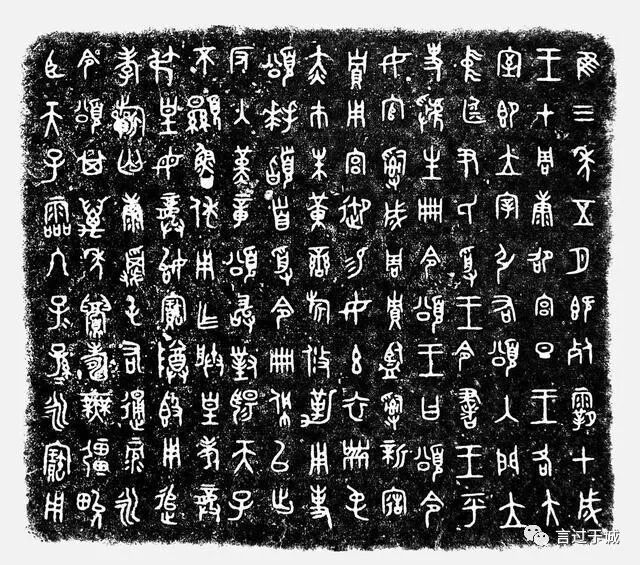 隹三年五月既死霸甲戌
王才周康卲宮旦王各大
室即立宰引右頌入門立
中廷尹氏受王令書王乎
史虢生冊令頌王曰頌令
女官𤔲成周貯監𤔲新造
貯用宮御易女玄衣黹屯
赤巿朱黃鑾旂攸勒用事
頌拜𩒨首受令冊佩以出
反入堇章頌敢對揚天子
不顯魯休用乍朕皇考龏
弔皇母龏始寶尊鼎用追
孝𣄨匄康𩔁屯右通彔永
令頌其萬年眉壽無疆畯
臣天子霝冬子孫永寶用
言过于诚